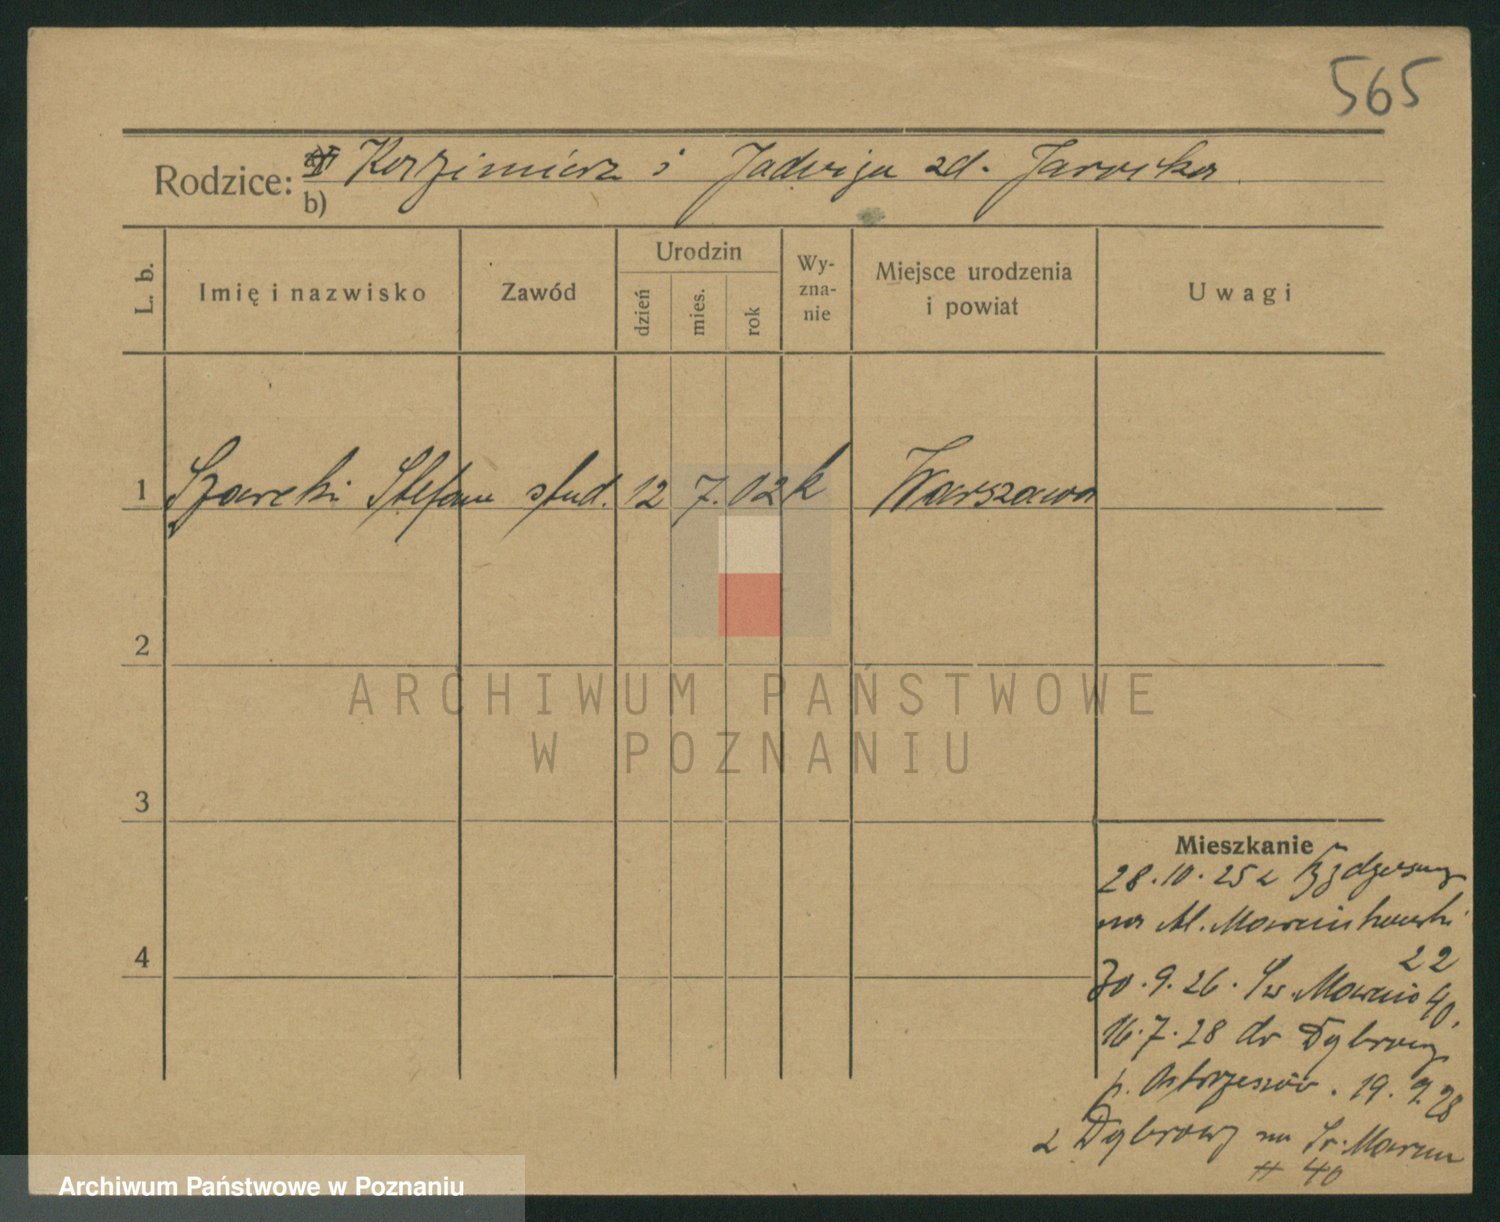 565
Rodzice: a) Kazimierz i Jadwiga zd. Jarocka
b)
L. b. Imię i nazwisko Zawód Urodzin dzień mies. rok Wy-zna-nie Miejsce urodzenia i powiat Uwagi
1 Szarecki Stefan stud. 12 7. 02 k Warszawa
2
ARCHIWUM PAŃSTWOWE
W POZNANIU
3
Mieszkanie
28.10.25 z Bydgoszczy
na Al. Marcinkowski
22
4
30.9.26. Św. Marcin 40.
16.7.28 do Dąbrowy
p. Ostrzeszów. 19.9.28
z Dąbrowy na Św. Marcin
40
Archiwum Państwowe w Poznaniu